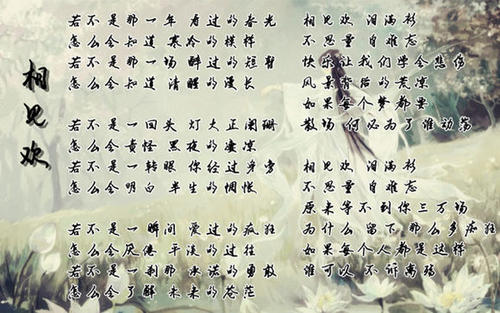 相见欢
若不是那一年看过的春光
怎么会知道 寒冷的模样
若不是那一场醉过的短暂
怎么会知道 清醒的漫长
若不是一回头 灯火正阑珊
怎么会责怪 黑夜的凄凉
若不是一转眼 你经过身旁
怎么会明白 半生的惆怅
若不是一瞬间 爱过的疯狂
怎么会厌倦 平淡的过往
若不是一刹那 承诺的勇敢
怎么会了解 未来的苍茫
相见欢 泪满衫
不思量 自难忘
快乐让我们学会悲伤
风景背后的荒凉
如果每个梦都要
散场 何必为了谁动荡
相见欢 泪满衫
不思量 自难忘
原来等不到你三万场
为什么 留下 那么多疯狂
如果每个人都是这样
谁可以 不诉离殇